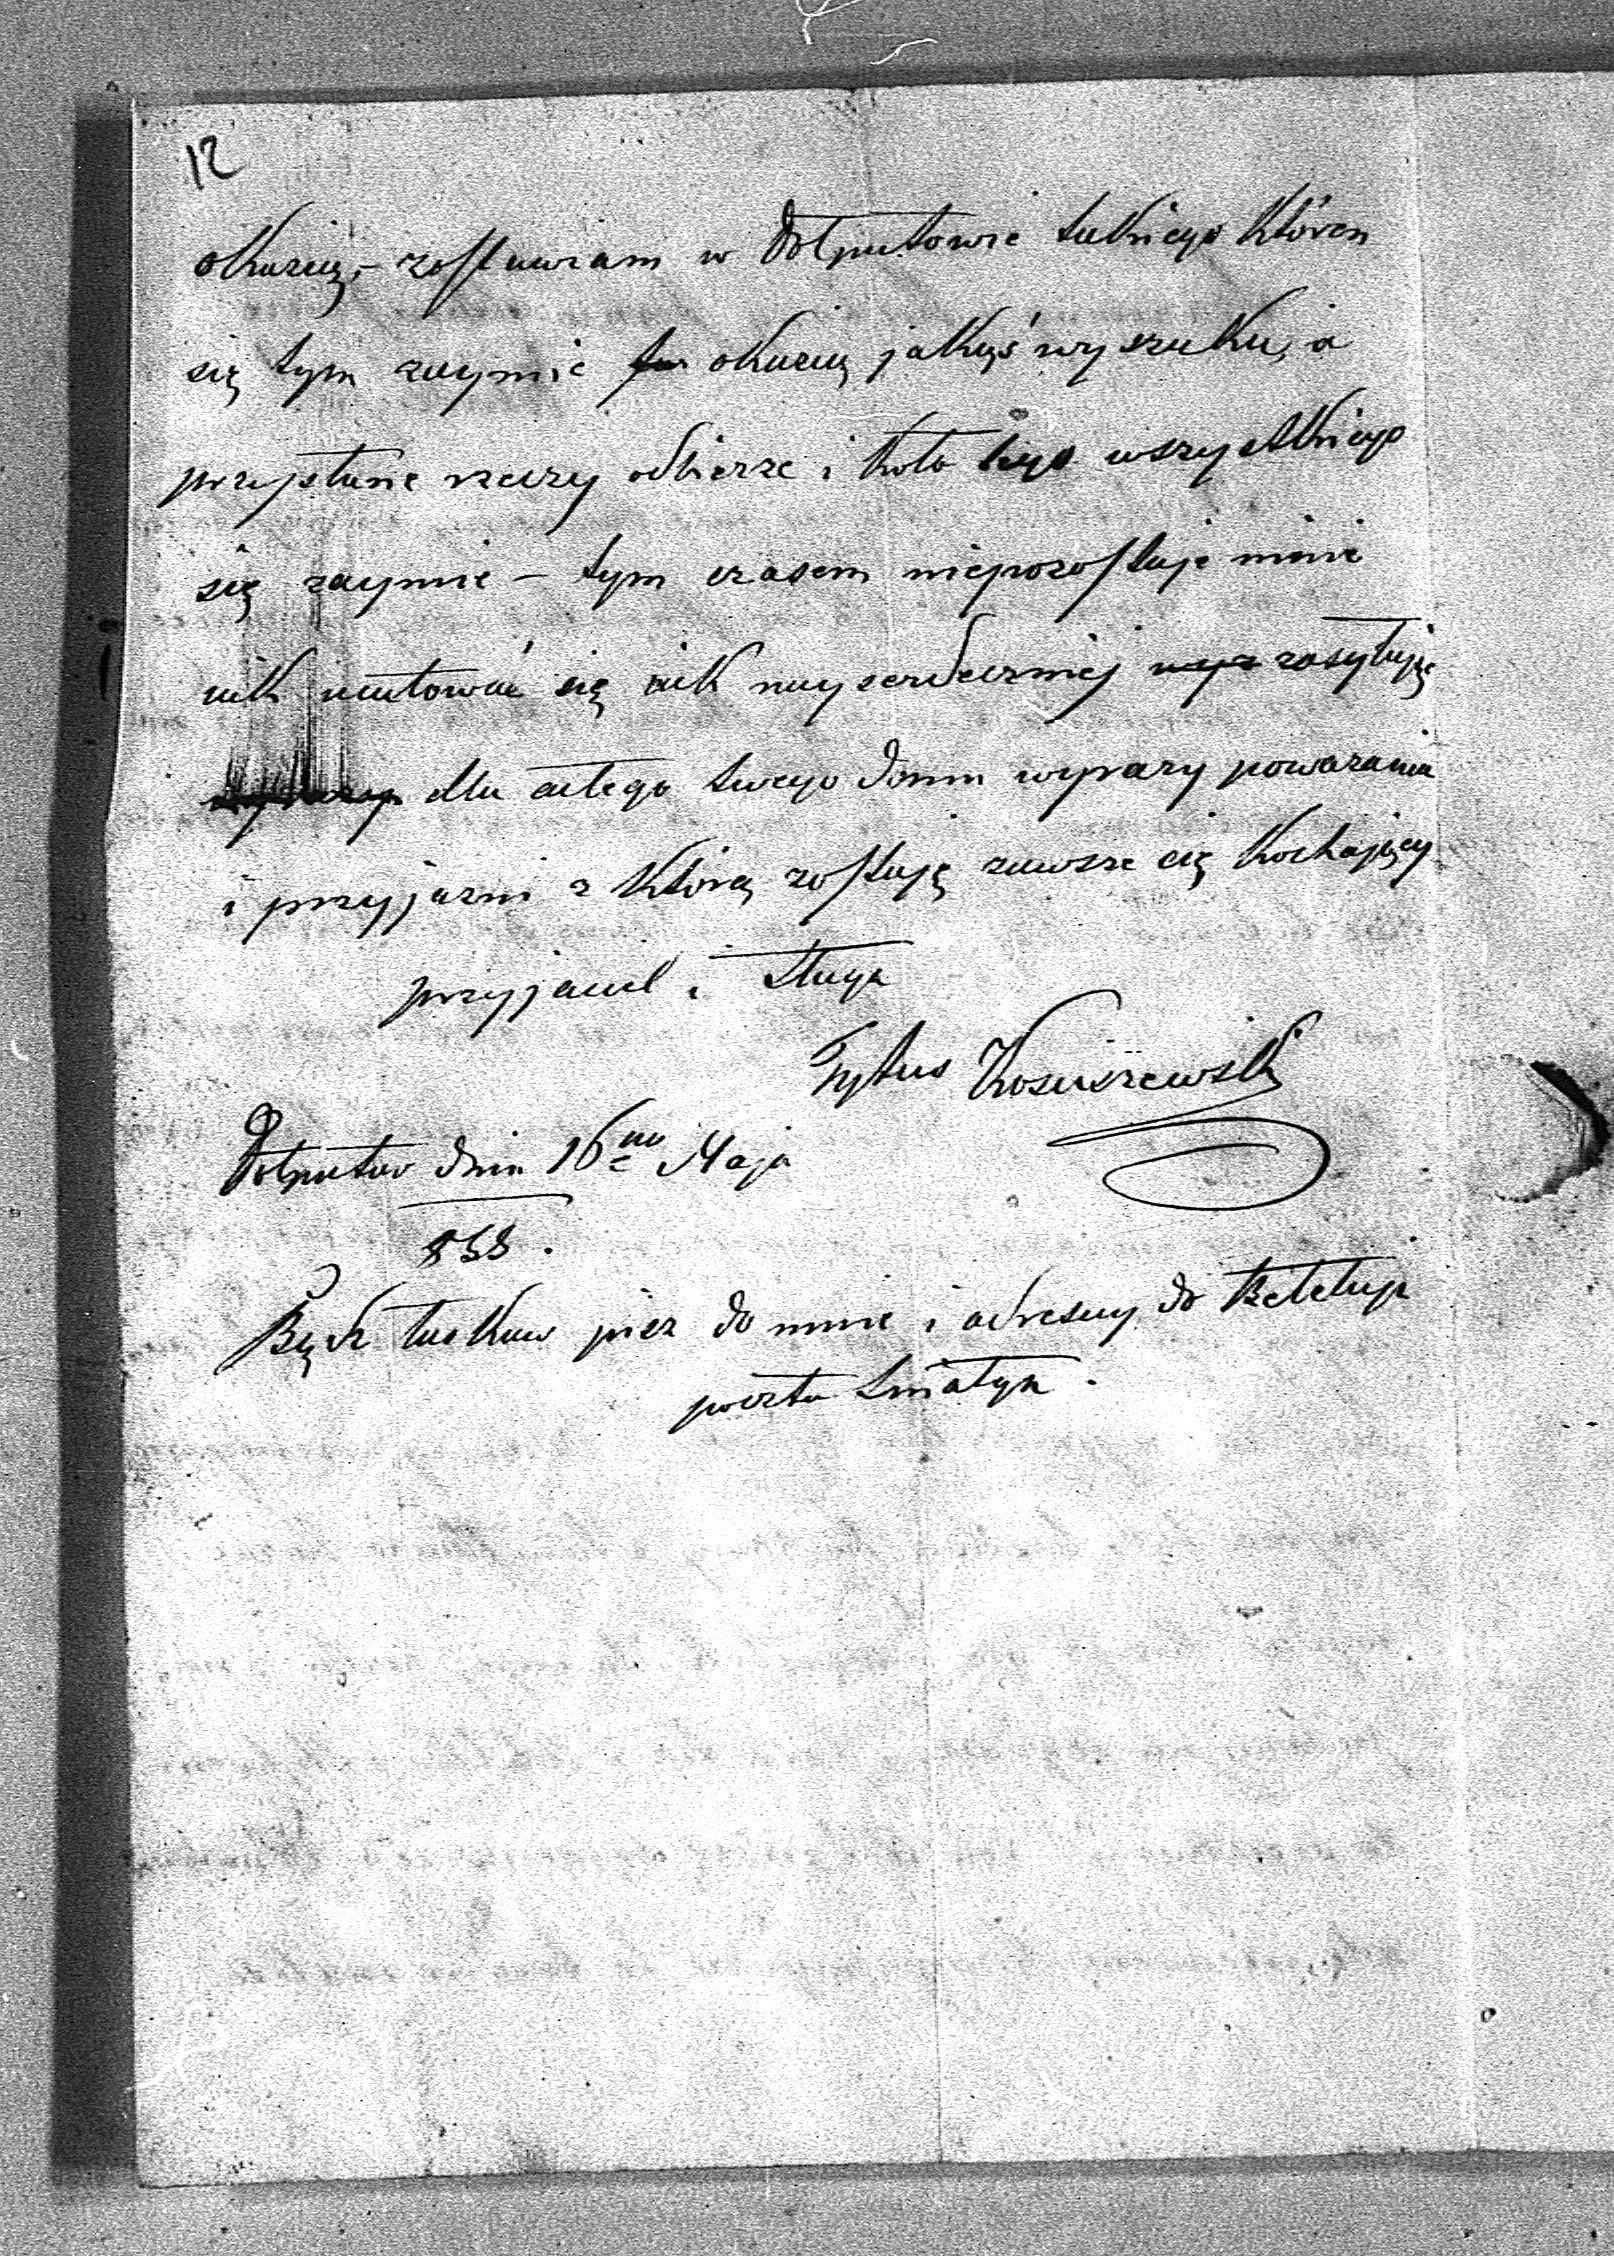 12
okazią, – zostawiam w Dołputowie takiego któren
się tym zaymie okazią jakąś wyszuka, a
przysłane rzeczy odbierze i koło tego wszystkiego
się zaymie – tym czasem niepozostaje mnie
jak uciłować się jak nayserdeczniej zasyłając
dla całego twego domu wyrazy poważania
i przyjaźni z którą zostaję zawsze cię kochający
przyjaciel i sługa
Tytus Kościszewski
Dołputow dnia 16no Maja
833.
Bądź łaskaw pisz do mnie i adresuy do
poczta Sniatyn.